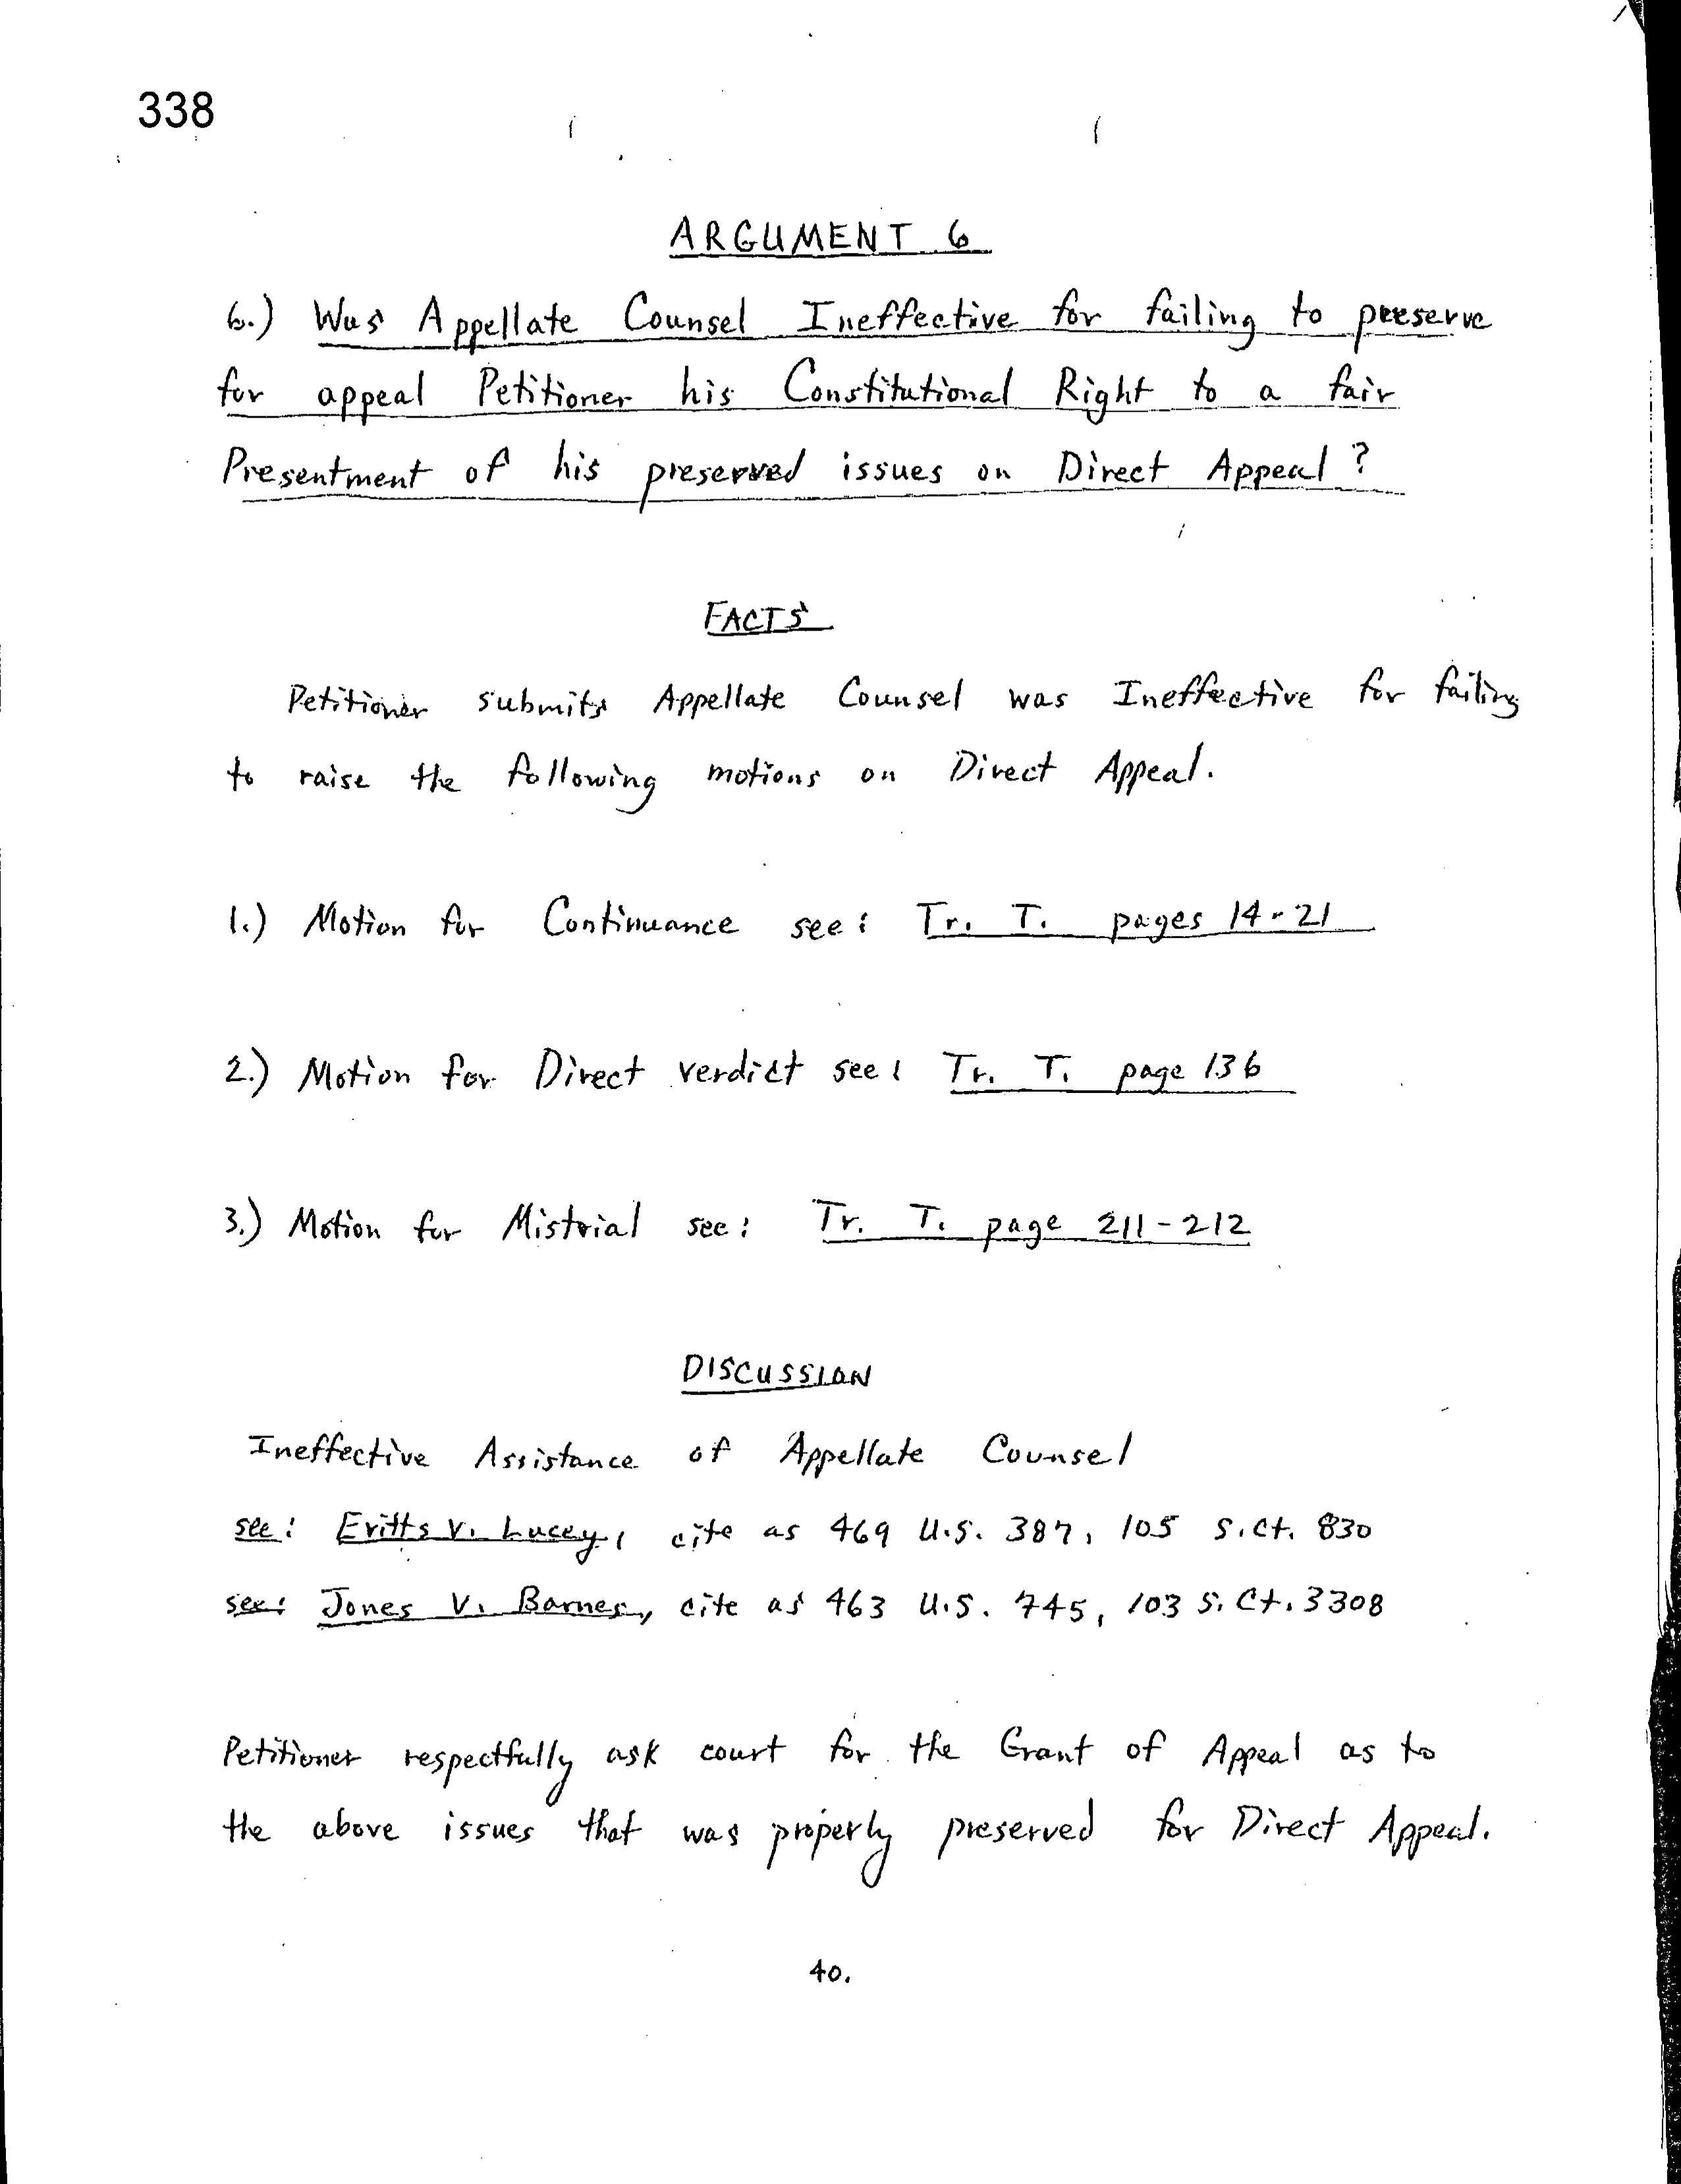 338
ARGUMENT 6
6.) Was Appellate Counsel Ineffective for failing to preserve
for appeal Petitioner his Constitutional Right to a fair
Presentment of his preserved issues on Direct Appeal?
FACTS
Petitioner submits Appellate Counsel was Ineffective for failing
to raise the following motions on Direct Appeal.
1.) Motion for Continuance see: Tr. T. pages 14-21
2.) Motion for Direct verdict see: Tr. T. page 136
3.) Motion for Mistrial see: Tr. T. page 211-212
DISCUSSION
Ineffective Assistance of Appellate Counsel
see: Evitts v. Lucey, cite as 469 U.S. 387, 105 S.Ct. 830
see: Jones v. Barnes, cite as 463 U.S. 745, 103 S. Ct. 3308
Petitioner respectfully ask court for the Grant of Appeal as to
the above issues that was properly preserved for Direct Appeal.
40.